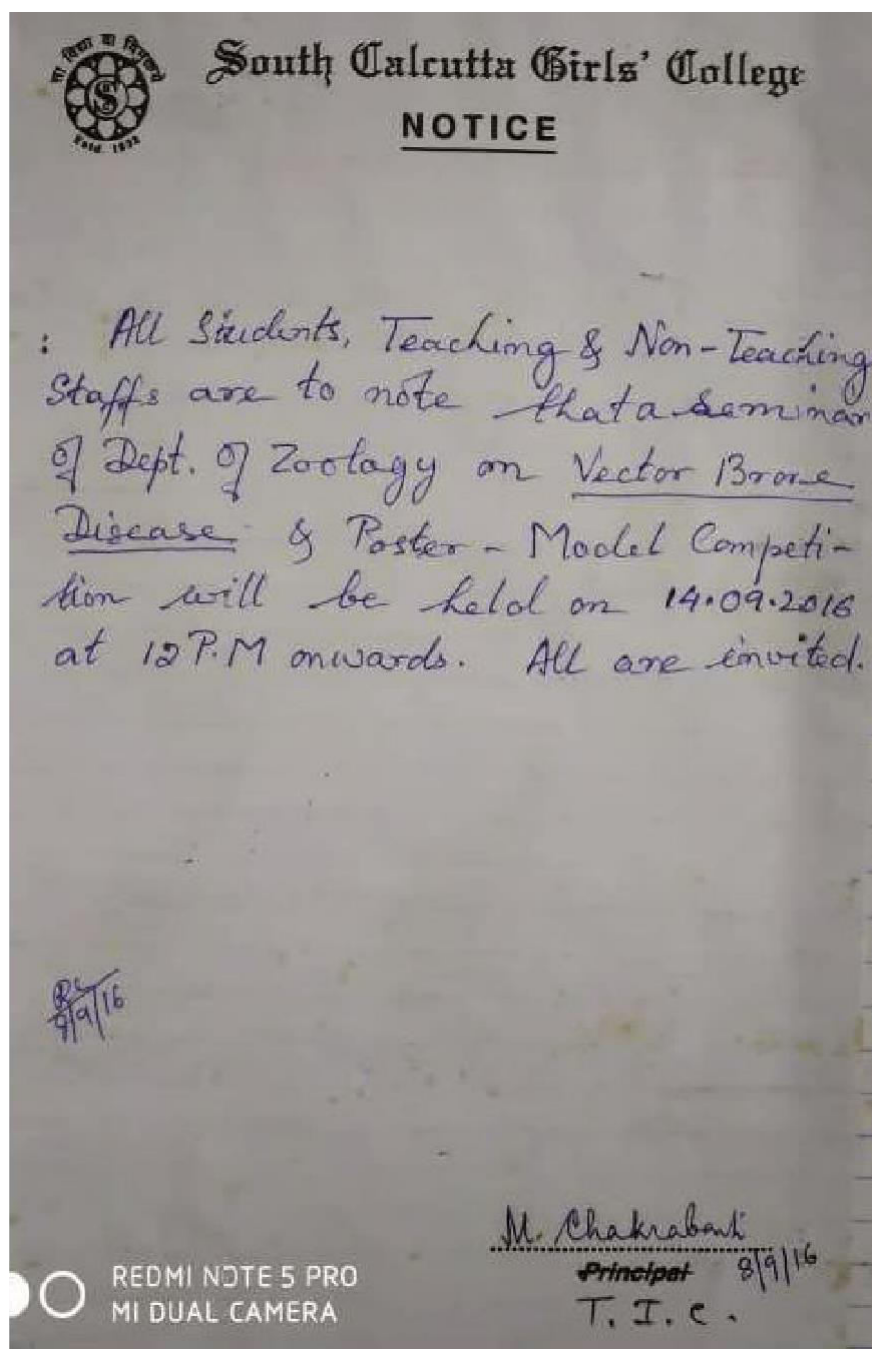 सा विद्या या विमुक्तये
S
Estd. 1932
South Calcutta Girls' College
NOTICE
: All Students, Teaching & Non-Teaching
Staffs are to note that a seminar
of Dept. of Zoology on Vector Brone
Disease & Poster - Model Competi-
tion will be held on 14.09.2016
at 12 P.M onwards. All are invited.
8/9/16
M. Chakrabarti
8/9/16
Principal
T. I. C.
REDMI NOTE 5 PRO
MI DUAL CAMERA